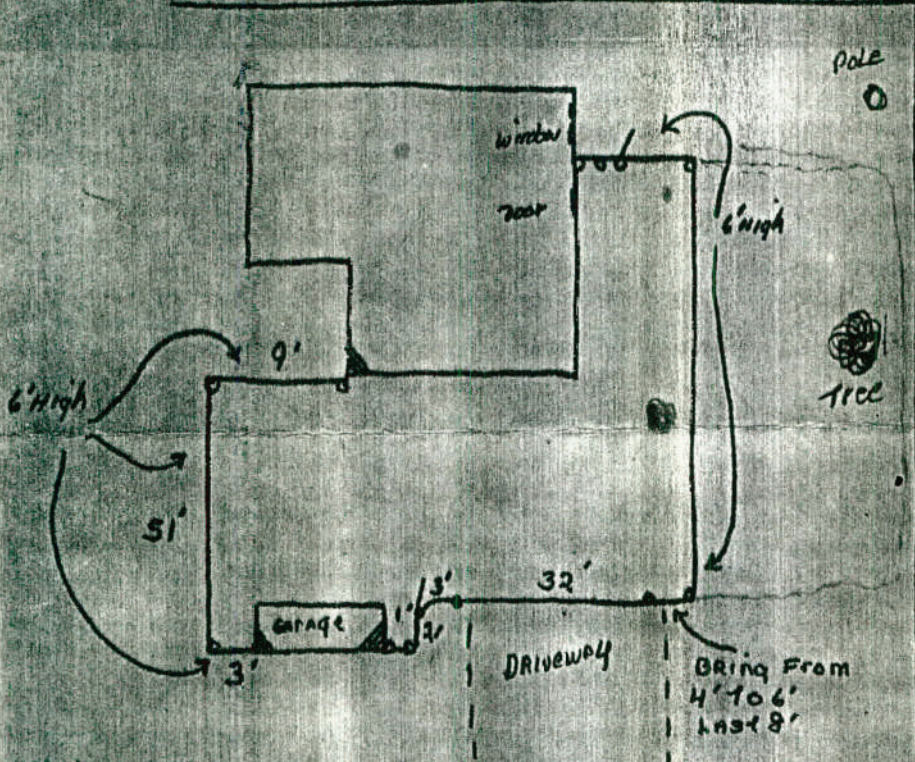 Pole
window
Door
6' High
9'
6' High
Tree
51'
3'
32'
1'
2'
GARAGE
3'
DRIVEWAY
BRing From
4' TO 6'
LAST 8'